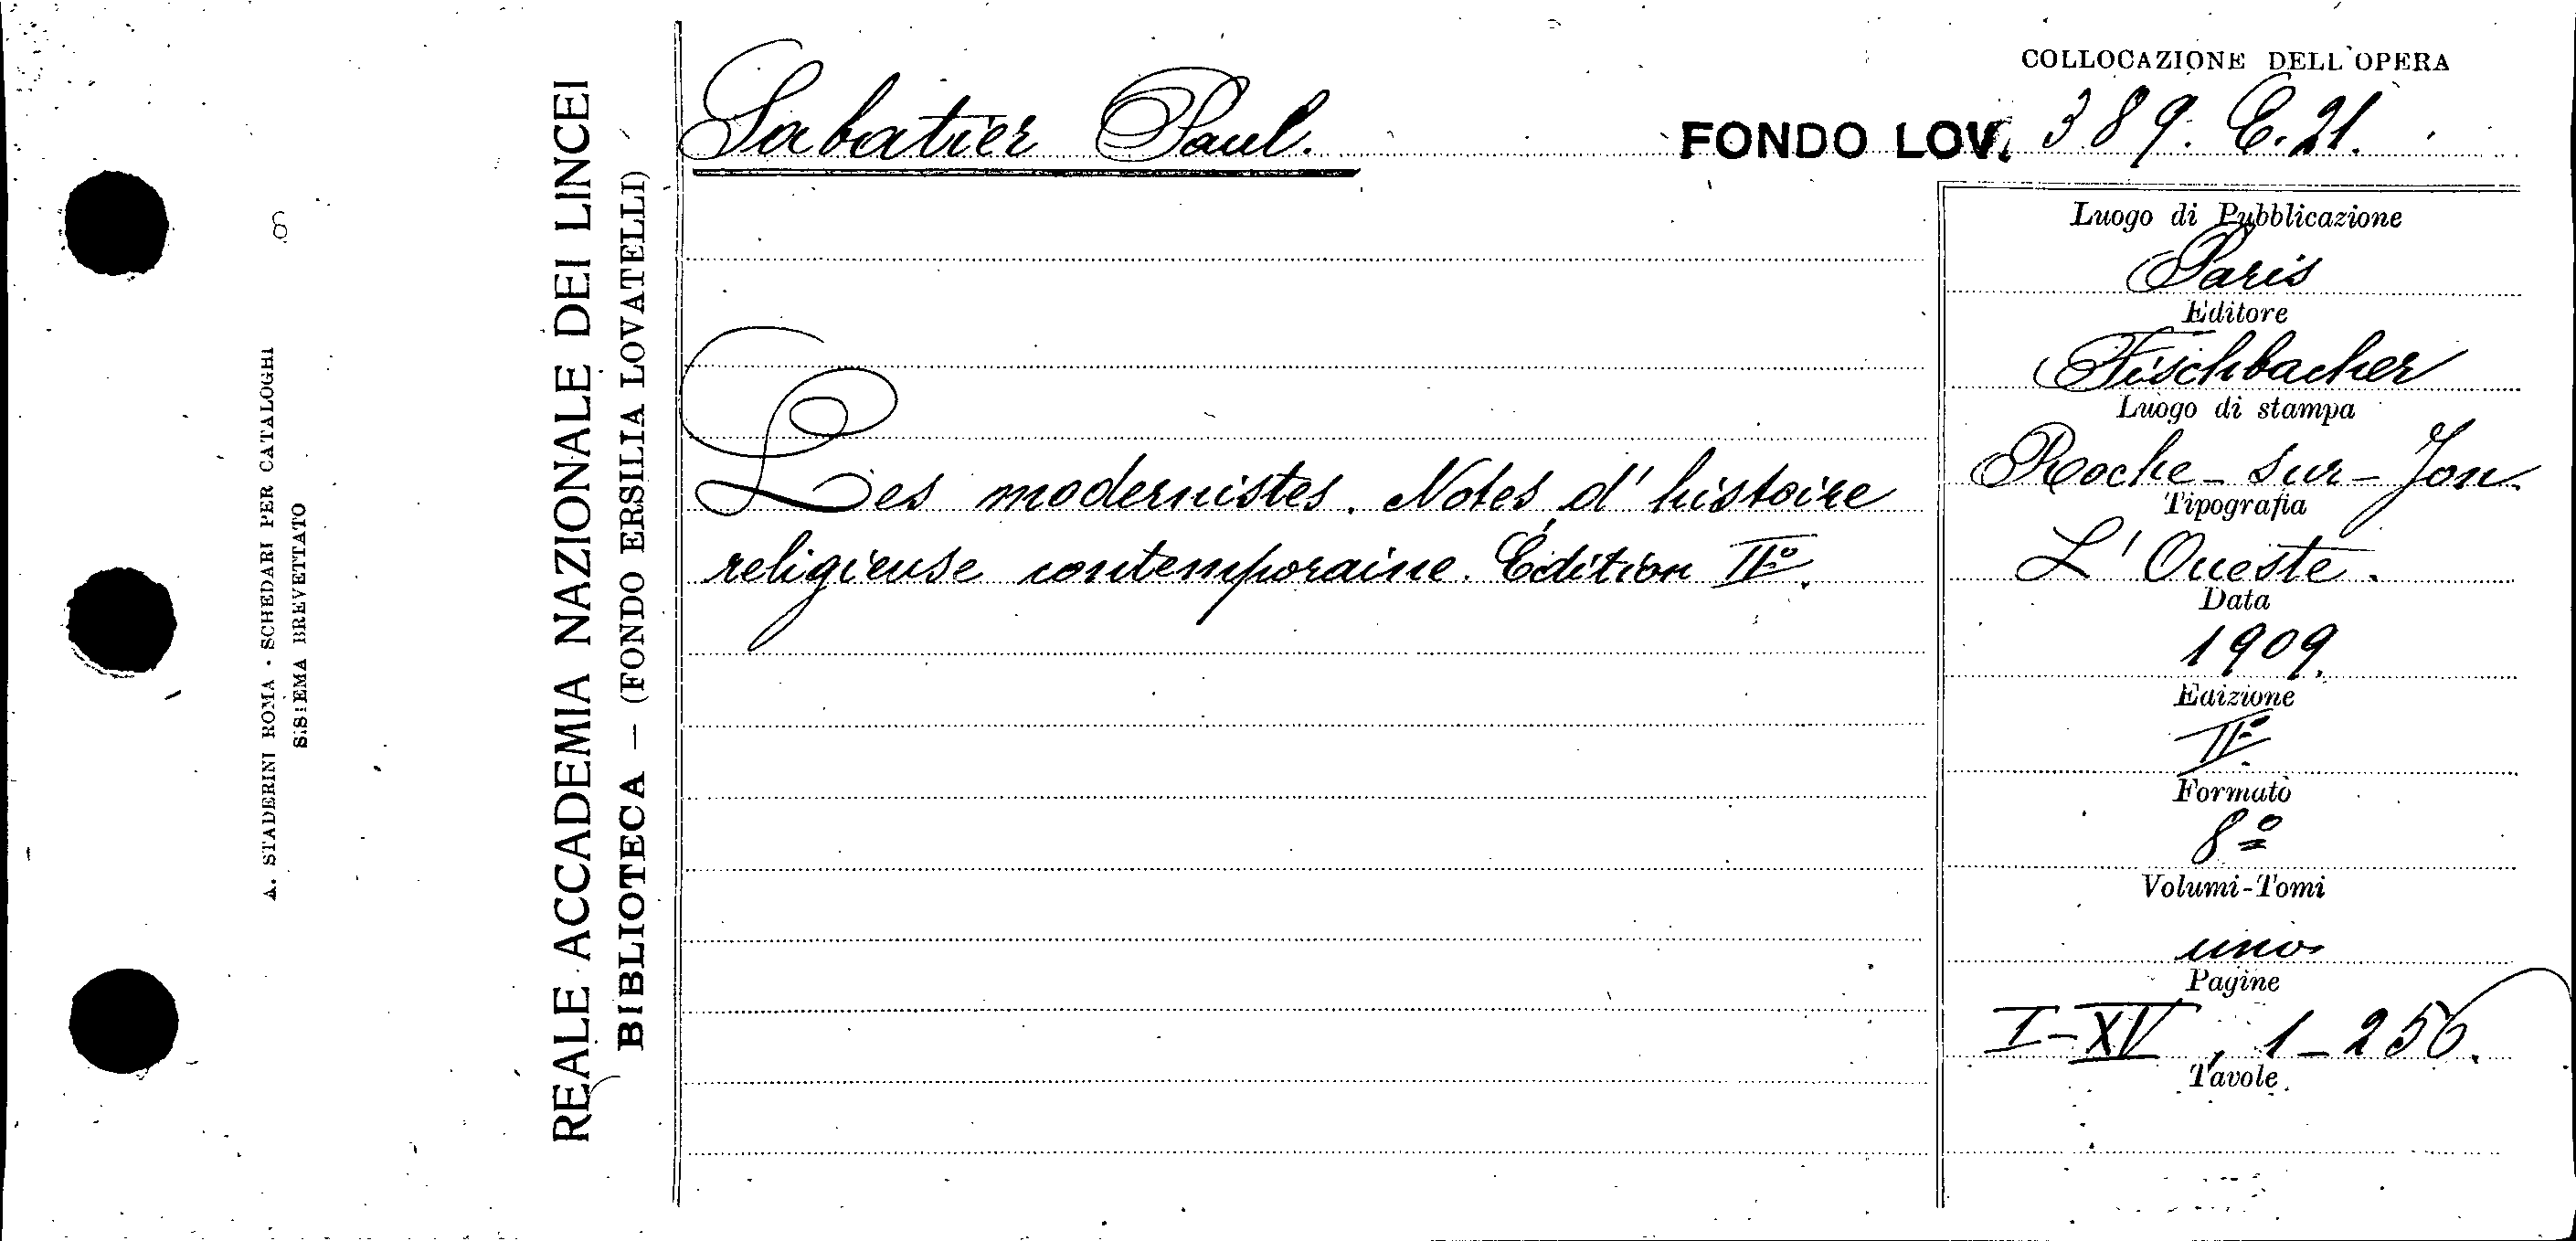 COLLOCAZIONE DELL'OPERA
Sabatier Paul.
FONDO LOV. 389. E. 21.
Les modernistes. Notes d'histoire
religieuse contemporaine. Édition IIº.
Luogo di Pubblicazione
Paris
Editore
Fischbacher
Luogo di stampa
Roche-sur-Jon.
Tipografia
L'Oueste.
Data
1909.
Edizione
IIº
Formato
8º
Volumi-Tomi
uno
Pagine
I-XV, 1-256.
Tavole
REALE ACCADEMIA NAZIONALE DEI LINCEI
BIBLIOTECA — (FONDO ERSILIA LOVATELLI)
A. STADERINI ROMA - SCHEDARI PER CATALOGHI
SISTEMA BREVETTATO